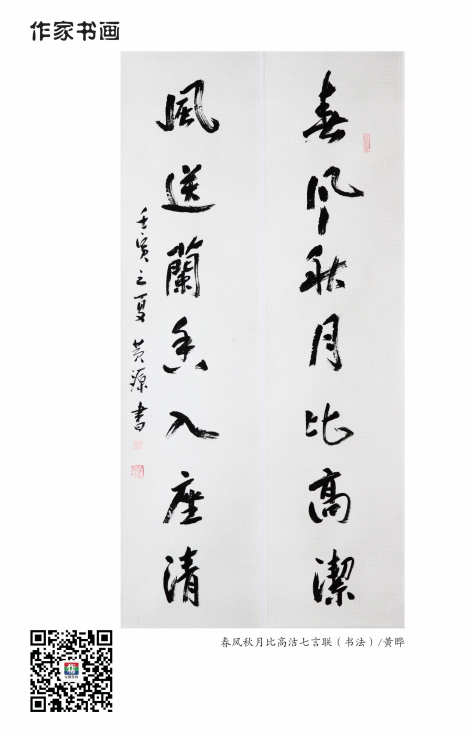 作家书画
春風秋月比高潔
風送蘭香入座清
壬寅之夏 黄源書
春风秋月比高洁七言联（书法）/黄晔